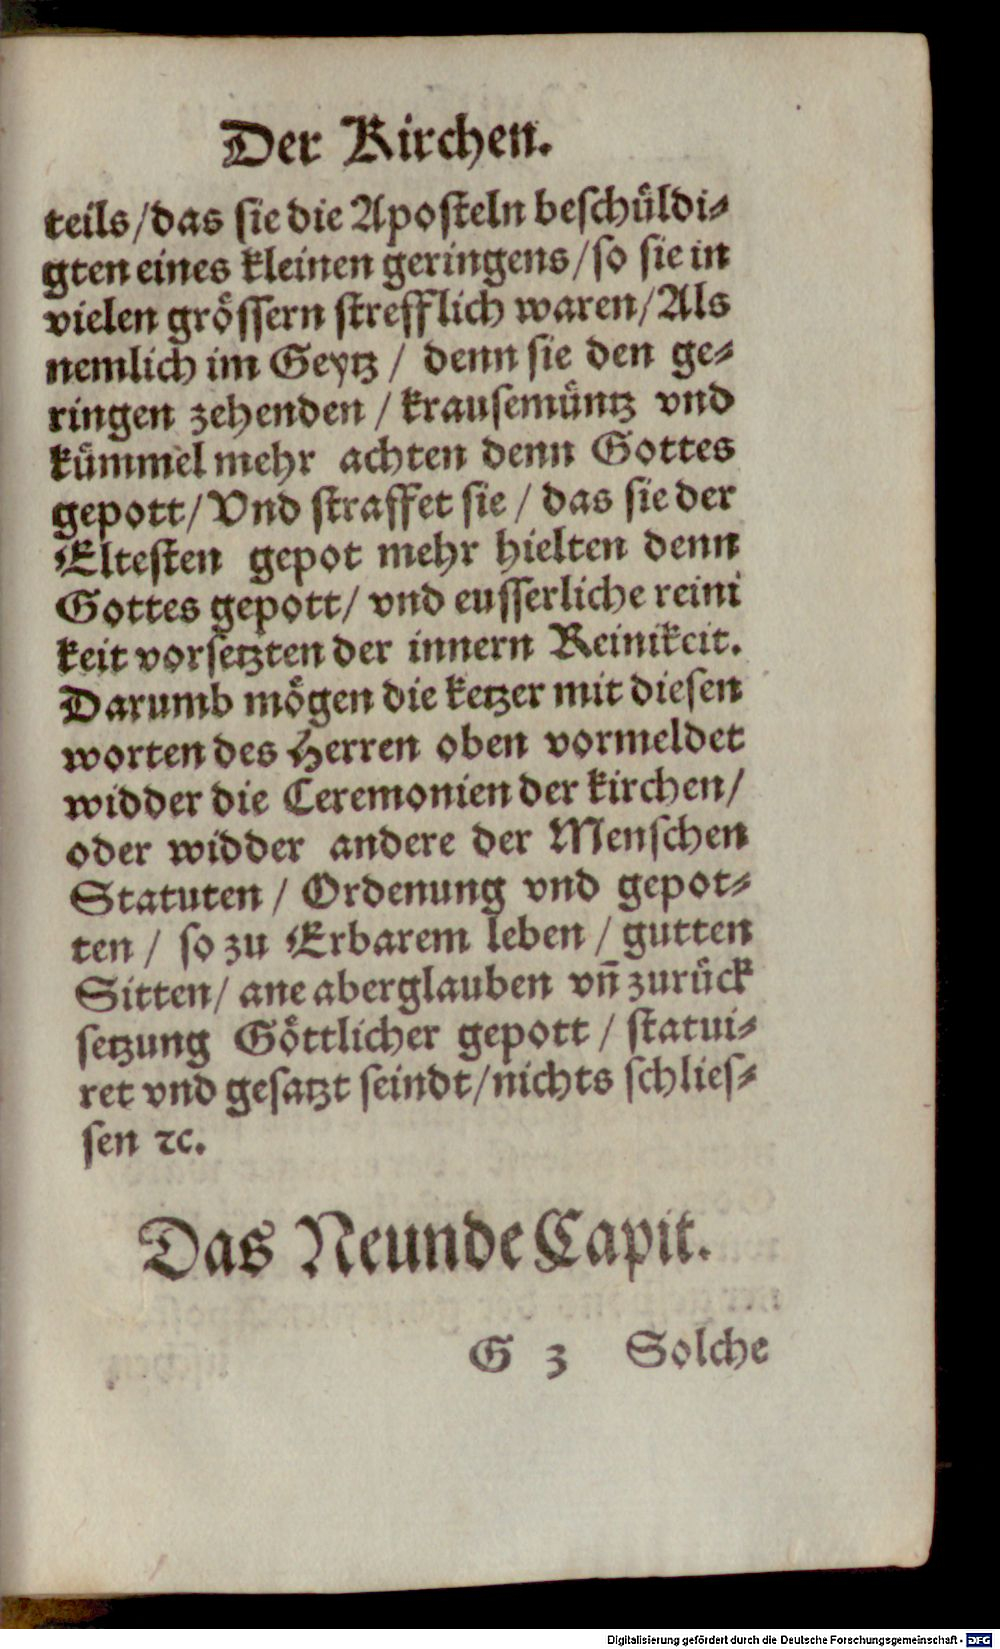 Der Kirchen.
teils/das sie die Aposteln beschüldi⸗
gten eines kleinen geringens/so sie in
vielen grössern strefflich waren/Als
nemlich im Geytz/ denn sie den ge⸗
ringen zehenden/krausemüntz vnd
kümmel mehr achten denn Gottes
gepott/Vnd straffet sie/das sie der
Eltesten gepot mehr hielten denn
Gottes gepott/ vnd eusserliche reini
keit vorsetzten der innern Reinikeit.
Darumb mögen die ketzer mit diesen
worten des Herren oben vormeldet
widder die Ceremonien der kirchen/
oder widder andere der Menschen
Statuten/Ordenung vnd gepot⸗
ten/ so zu Erbarem leben/gutten
Sitten/ane aberglauben vñ zurück
setzung Göttlicher gepott/statui⸗
ret vnd gesatzt seindt/nichts schlies⸗
sen ꝛc.
Das Neunde Capit.
G 3 Solche
Digitalisierung gefördert durch die Deutsche Forschungsgemeinschaft - DFG